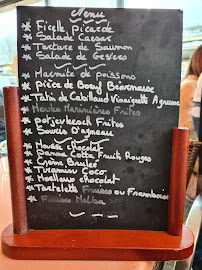 Menu
* Ficelle picarde
* Salade Caesar
* Tartare de Saumon
* Salade de Gesiers
* Marmite de poissons
* pièce de Boeuf Béarnaise
* Tatin de Cabillaud Vinaigrette Agrume
* Moules Marinières Frites
* potjevleesch Frites
* Souris D'agneau
* Mousse chocolat
* Panna Cotta Fruits Rouges
* Crème Brulée
* Tiramisu Coco
* Moelleux chocolat
* Tartelette Fraises ou Framboises
* Fraises Melba